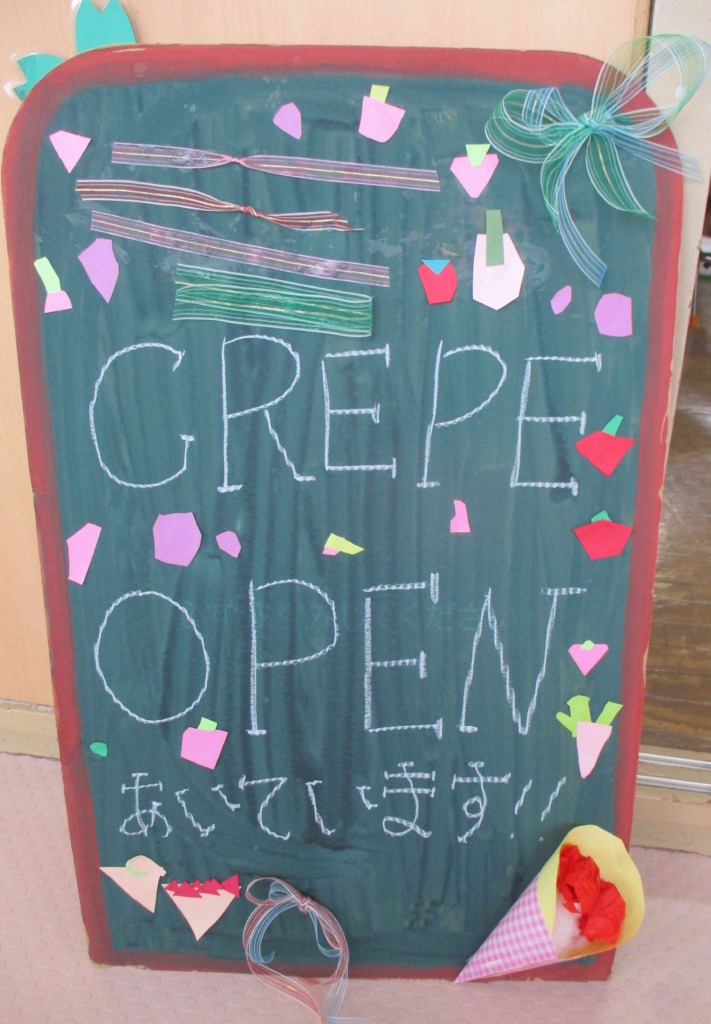 CREPE
OPEN
あいています!!